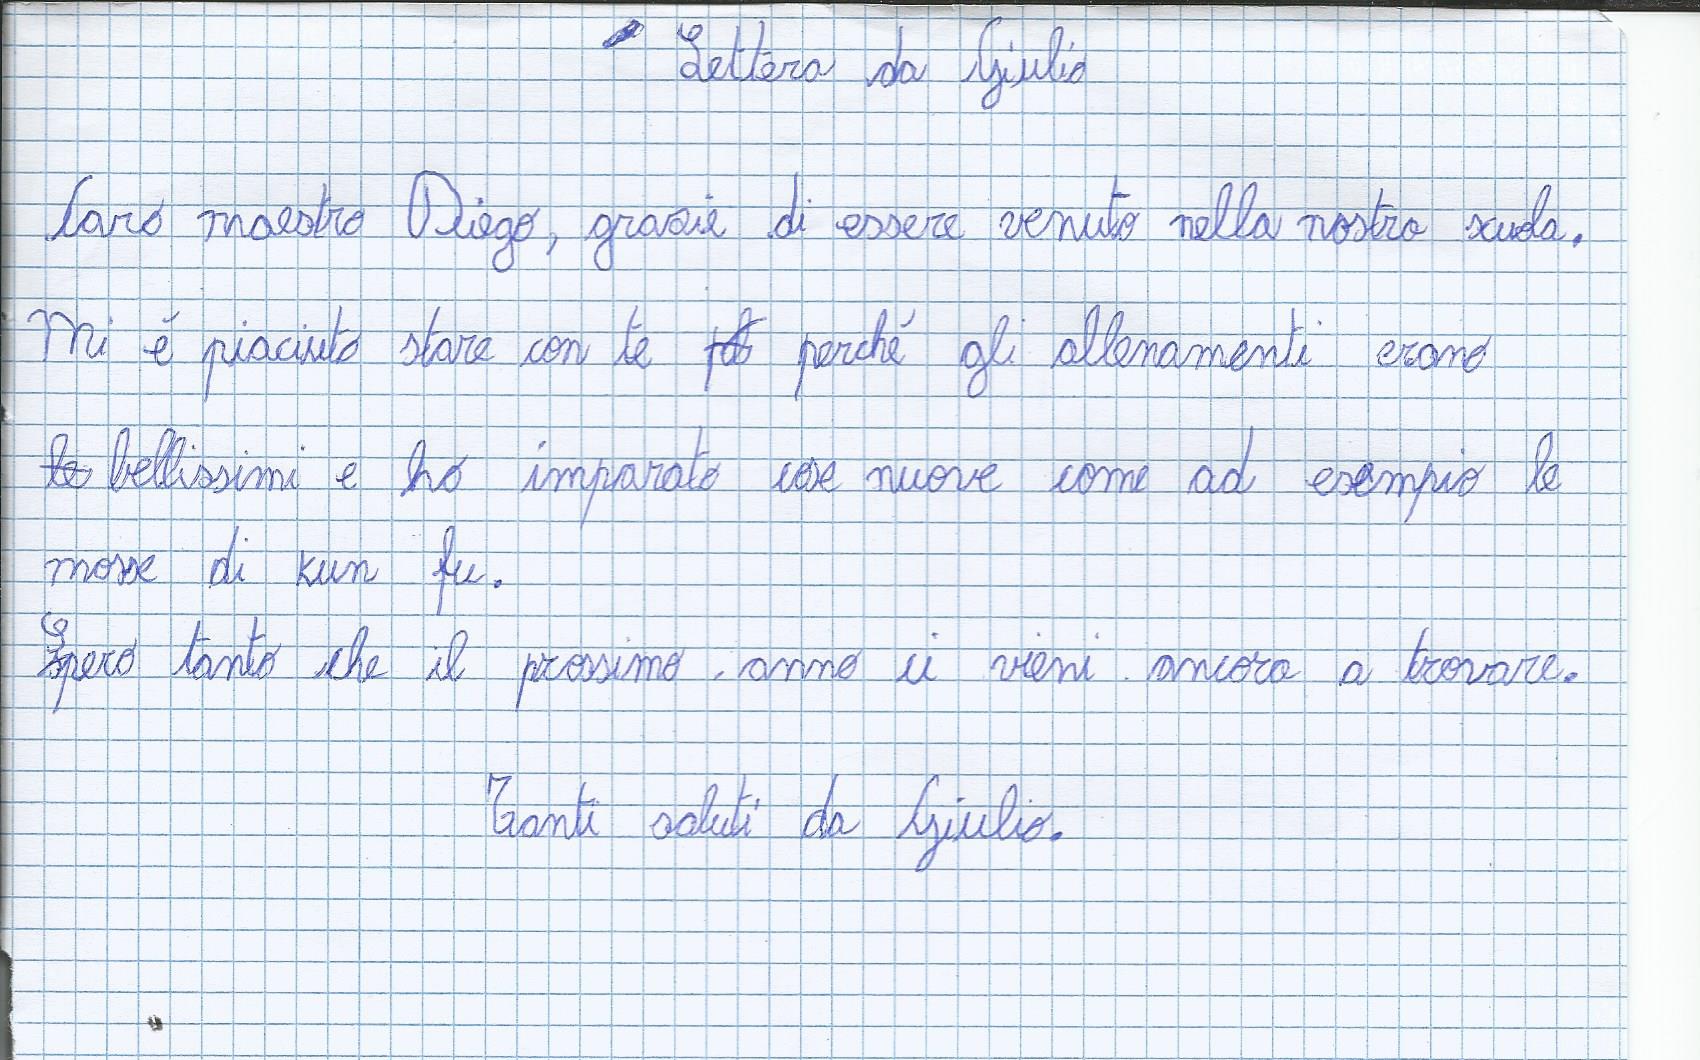 Lettera da Giulio
Caro maestro Diego, grazie di essere venuto nella nostra scuola.
Mi è piaciuto stare con te perché gli allenamenti erano
bellissimi e ho imparato cose nuove come ad esempio le
mosse di kun fu.
Spero tanto che il prossimo anno ci vieni ancora a trovare.
Tanti saluti da Giulio.